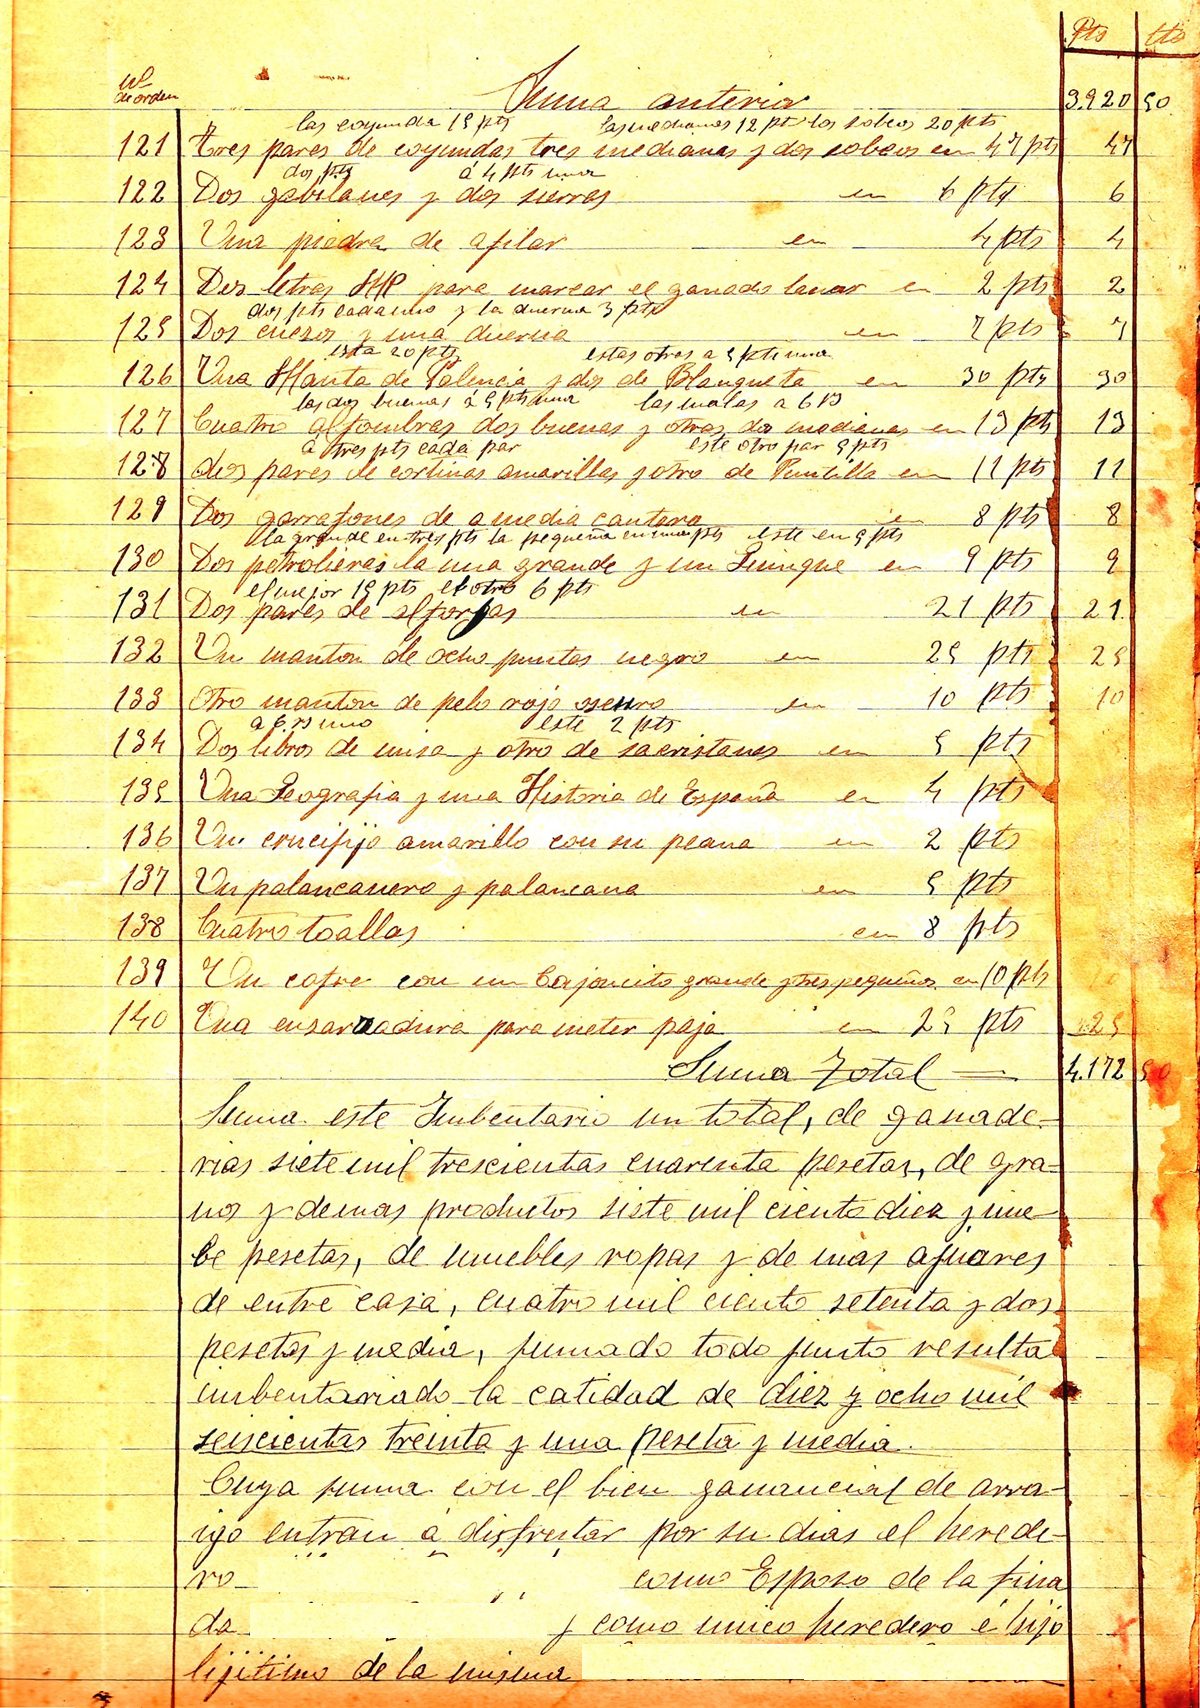 Pts cts
Nº de orden Suma anterior 3.920 50
las coyunda 15 pts las medianas 12 pts los sobeos 20 pts
121 Tres pares de coyundas tres medianas y dos sobeos en 47 pts 47
dos pts á 4 pts una
122 Dos gabilanes y dos sierras en 6 pts 6
123 Una piedra de afilar en 4 pts 4
124 Dos letras para marcar el ganado lanar en 2 pts 2
dos pts cada uno y la duerna 3 pts
125 Dos cuezos y una duerna en 7 pts 7
esta 20 pts estas otras a 5 pts una
126 Una Manta de Palencia y dos de Blanqueta en 30 pts 30
las dos buenas á 5 pts una las malas a 6 rs
127 Cuatro alfombras dos buenas y otras dos medianas en 13 pts 13
a tres pts cada par este otro par 5 pts
128 dos pares de cortinas amarillas y otro de Puntilla en 11 pts 11
129 Dos garrafones de a media cantara en 8 pts 8
la grande en tres pts la pequeña en una pts este en 5 pts
130 Dos petrolieras la una grande y un Quinque en 9 pts 9
el mejor 15 pts el otro 6 pts
131 Dos pares de alforjas en 21 pts 21
132 Un manton de ocho puntas negro en 25 pts 25
133 Otro manton de pelo rojo oscuro en 10 pts 10
a 6 rs uno este 2 pts
134 Dos libros de misa y otro de sacristanes en 5 pts
135 Una Geografia y una Historia de España en 4 pts
136 Un crucifijo amarillo con su peana en 2 pts
137 Un palancanero y palancana en 5 pts
138 Cuatro toallas en 8 pts
139 Un cofre con un Cajoncito grande y tres pequeños en 10 pts
140 Una ensarnadura para meter paja en 25 pts 25
Suma Total 4.172 50
Suma este Imbentario un total, de ganade-
rias siete mil trescientas cuarenta pesetas, de gra-
nos y demas productos siete mil ciento diez y nue-
be pesetas, de muebles ropas y de mas ajuares
de entre casa, cuatro mil ciento setenta y dos
pesetas y media, sumado todo junto resulta
imbentariado la catidad de diez y ocho mil
seiscientas treinta y una peseta y media.
Cuya suma con el bien ganancial de arra-
igo entran á disfrutar por su dias el herede-
ro como Esposo de la fina
da y como unico heredero é hijo
lijitimo de la misma